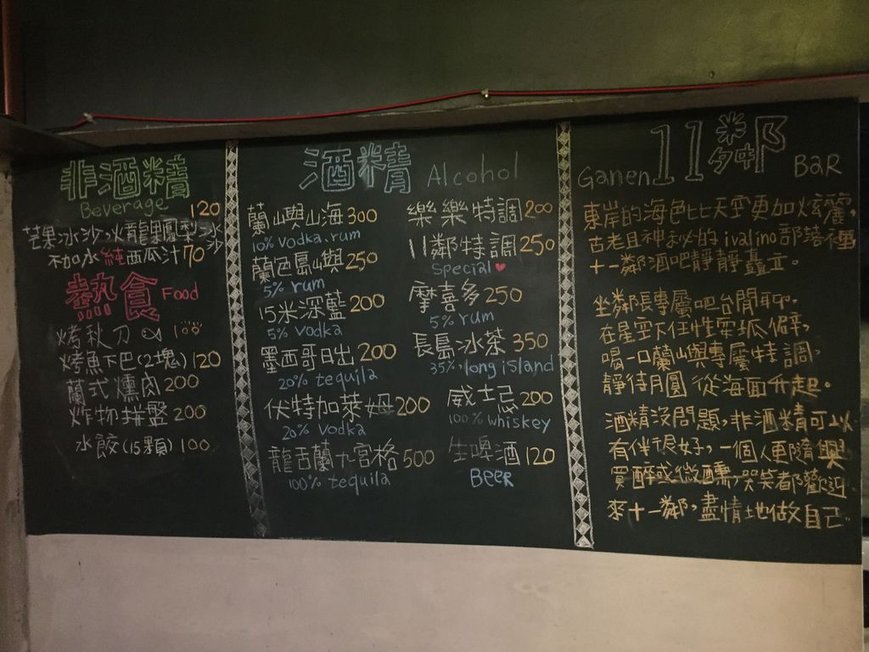 非酒精
Beverage 120
芒果冰沙,火龍果鳳梨冰沙
不加水純西瓜汁70
熱食 Food
烤秋刀 100
烤魚下巴(2塊)120
蘭式燻肉200
炸物拼盤200
水餃(15顆)100
酒精 Alcohol
蘭山與山海300
10% vodka.rum
蘭色島山與250
5% rum
15米深藍200
5% vodka
墨西哥日出200
20% tequila
伏特加萊姆200
20% vodka
龍舌蘭九宮格500
100% tequila
樂樂特調200
11鄰特調250
Special
摩喜多250
5% rum
長島冰茶350
35%,long island
威士忌200
100% whiskey
生啤酒120
Beer
Ganen 11鄰 BAR
東岸的海色比天空更加炫麗,
古老且神祕的ivalino部落裡
十一鄰酒吧靜靜矗立。
坐鄰長專屬吧台閒聊.
在星空下任性耍孤僻,
喝一口蘭山與專屬特調,
靜待月圓從海面升起。
酒精沒問題,非酒精可以
有伴很好,一個人更隨興
買醉或微醺,哭笑都歡迎
來十一鄰,盡情地做自己